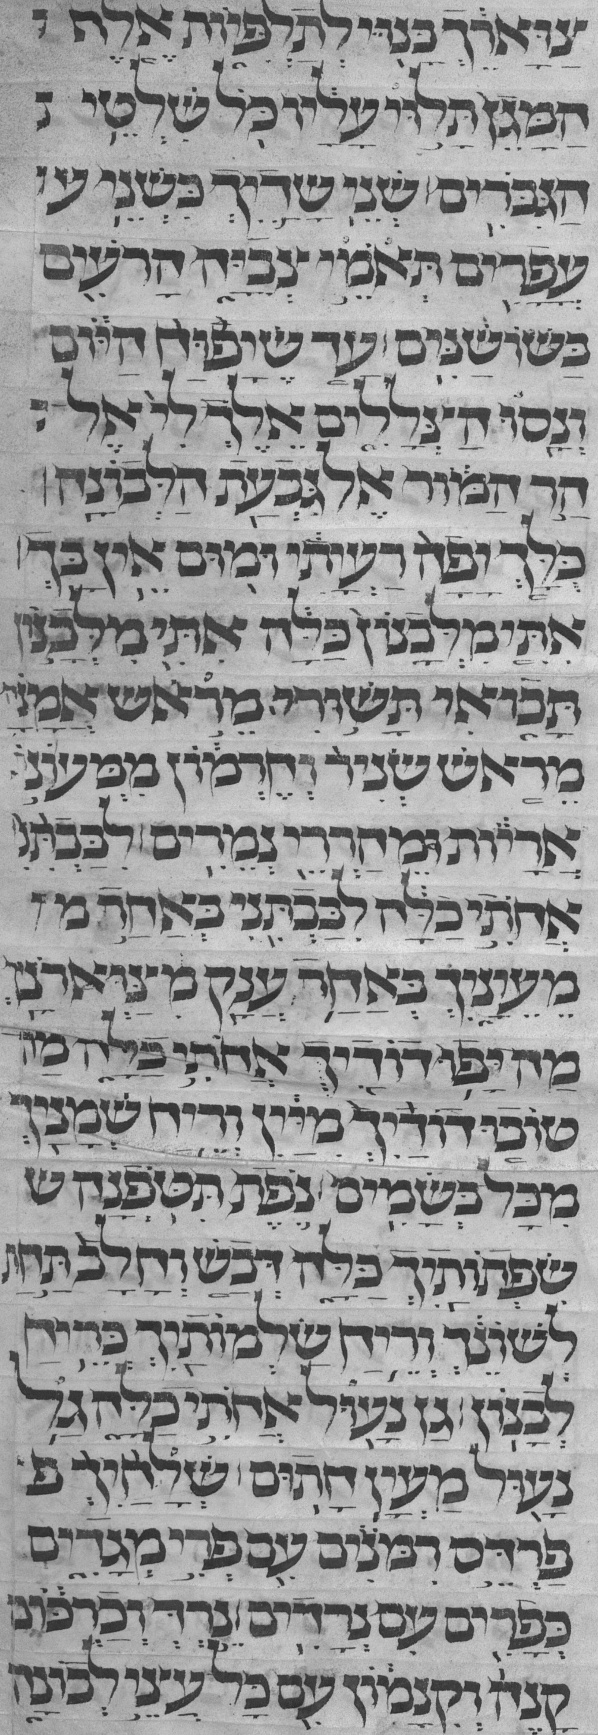 צַוָּארֵךְ בָּנוּי לְתַלְפִּיּוֹת אֶלֶף
הַמָּגֵן תָּלוּי עָלָיו כֹּל שִׁלְטֵי
הַגִּבֹּרִים׃ שְׁנֵי שָׁדַיִךְ כִּשְׁנֵי
עֳפָרִים תְּאֹמֵי צְבִיָּה הָרֹעִים
בַּשּׁוֹשַׁנִּים׃ עַד שֶׁיָּפוּחַ הַיּוֹם
וְנָסוּ הַצְּלָלִים אֵלֵךְ לִי אֶל
הַר הַמּוֹר אֶל גִּבְעַת הַלְּבוֹנָה׃
כֻּלָּךְ יָפָה רַעְיָתִי וּמוּם אֵין בָּךְ׃
אִתִּי מִלְּבָנוֹן כַּלָּה אִתִּי מִלְּבָנוֹן
תָּבוֹאִי תָּשׁוּרִי מֵרֹאשׁ אֲמָנָה
מֵרֹאשׁ שְׂנִיר וְחֶרְמוֹן מִמְּעֹנוֹ
אֲרָיוֹת וּמֵהַרֲרֵי נְמֵרִים׃ לִבַּבְתִּנִי
אֲחֹתִי כַלָּה לִבַּבְתִּנִי בְּאַחַד
מֵעֵינַיִךְ בְּאַחַד עֲנָק מִצַּוְּארֹנָיִךְ
מַה יָּפוּ דֹדַיִךְ אֲחֹתִי כַלָּה מַה
טֹּבוּ דֹדַיִךְ מִיַּיִן וְרֵיחַ שְׁמָנַיִךְ
מִכָּל בְּשָׂמִים׃ נֹפֶת תִּטֹּפְנָה
שִׂפְתוֹתַיִךְ כַּלָּה דְּבַשׁ וְחָלָב תַּחַת
לְשׁוֹנֵךְ וְרֵיחַ שַׂלְמֹתַיִךְ כְּרֵיחַ
לְבָנוֹן׃ גַּן נָעוּל אֲחֹתִי כַלָּה גַּל
נָעוּל מַעְיָן חָתוּם׃ שְׁלָחַיִךְ
פַּרְדֵּס רִמּוֹנִים עִם פְּרִי מְגָדִים
כְּפָרִים עִם נְרָדִים׃ נֵרְדְּ וְכַרְכֹּם
קָנֶה וְקִנָּמוֹן עִם כָּל עֲצֵי לְבוֹנָה